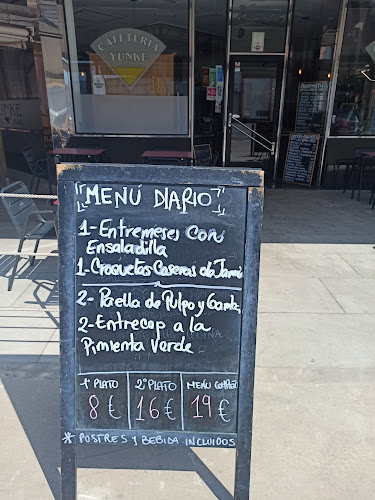 CAFETERIA
YUNKE
MENÚ DIARIO
1-Entremeses Con
Ensaladilla
1-Croquetas Caseras de Jamó
2- Paella de Pulpo y Gamba
2-Entrecop a la
Pimienta Verde
1º PLATO 2º PLATO MENÚ COMPLET
8€ 16€ 19€
* POSTRES Y BEBIDA INCLUIDOS